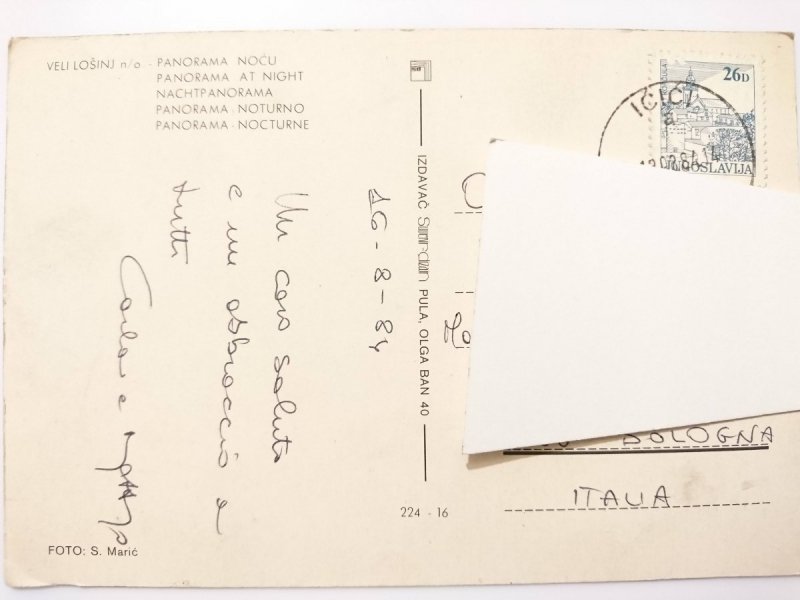 VELI LOŠINJ n/o - PANORAMA NOĆU
PANORAMA AT NIGHT
NACHTPANORAMA
PANORAMA - NOTURNO
PANORAMA - NOCTURNE
26D
JUGOSLAVIJA
IČIĆI
a
16-8-84
Un caro saluto
e un abbraccio a
tutti
Carla e
IZDAVAČ PULA, OLGA BAN 40
BOLOGNA
ITALIA
224 - 16
FOTO: S. Marić